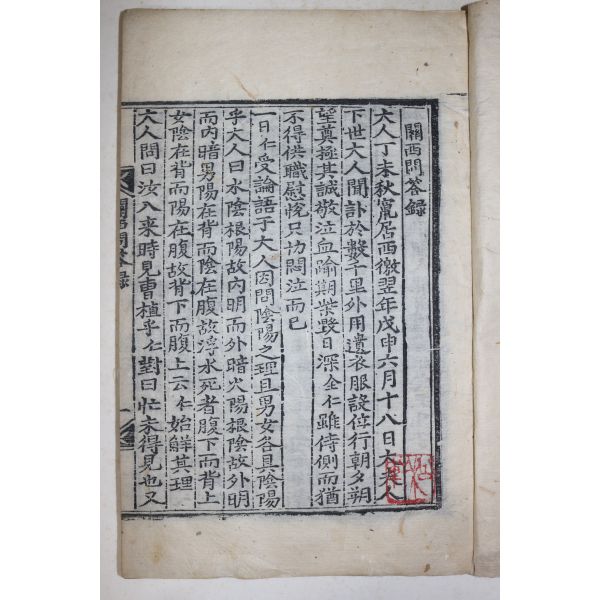 關西問答錄
大人丁未秋竄居西徼翌年戊申六月十八日大夫人
下世大人聞訃於數千里外用遺衣服設位行朝夕朔
望奠極其誠敬泣血踰期柴毀日深全仁雖侍側而猶
不得供職慰悅只切悶泣而已
一日仁受論語于大人因問陰陽之理且男女各具陰陽
乎大人曰水陰根陽故內明而外暗火陽根陰故外明
而內暗男陽在背而陰在腹故浮水死者腹下而背上
女陰在背而陽在腹故背下而腹上云仁始鮮其理
大人問曰汝入来時見曺植乎仁對曰忙未得見也又
關西問答錄
一